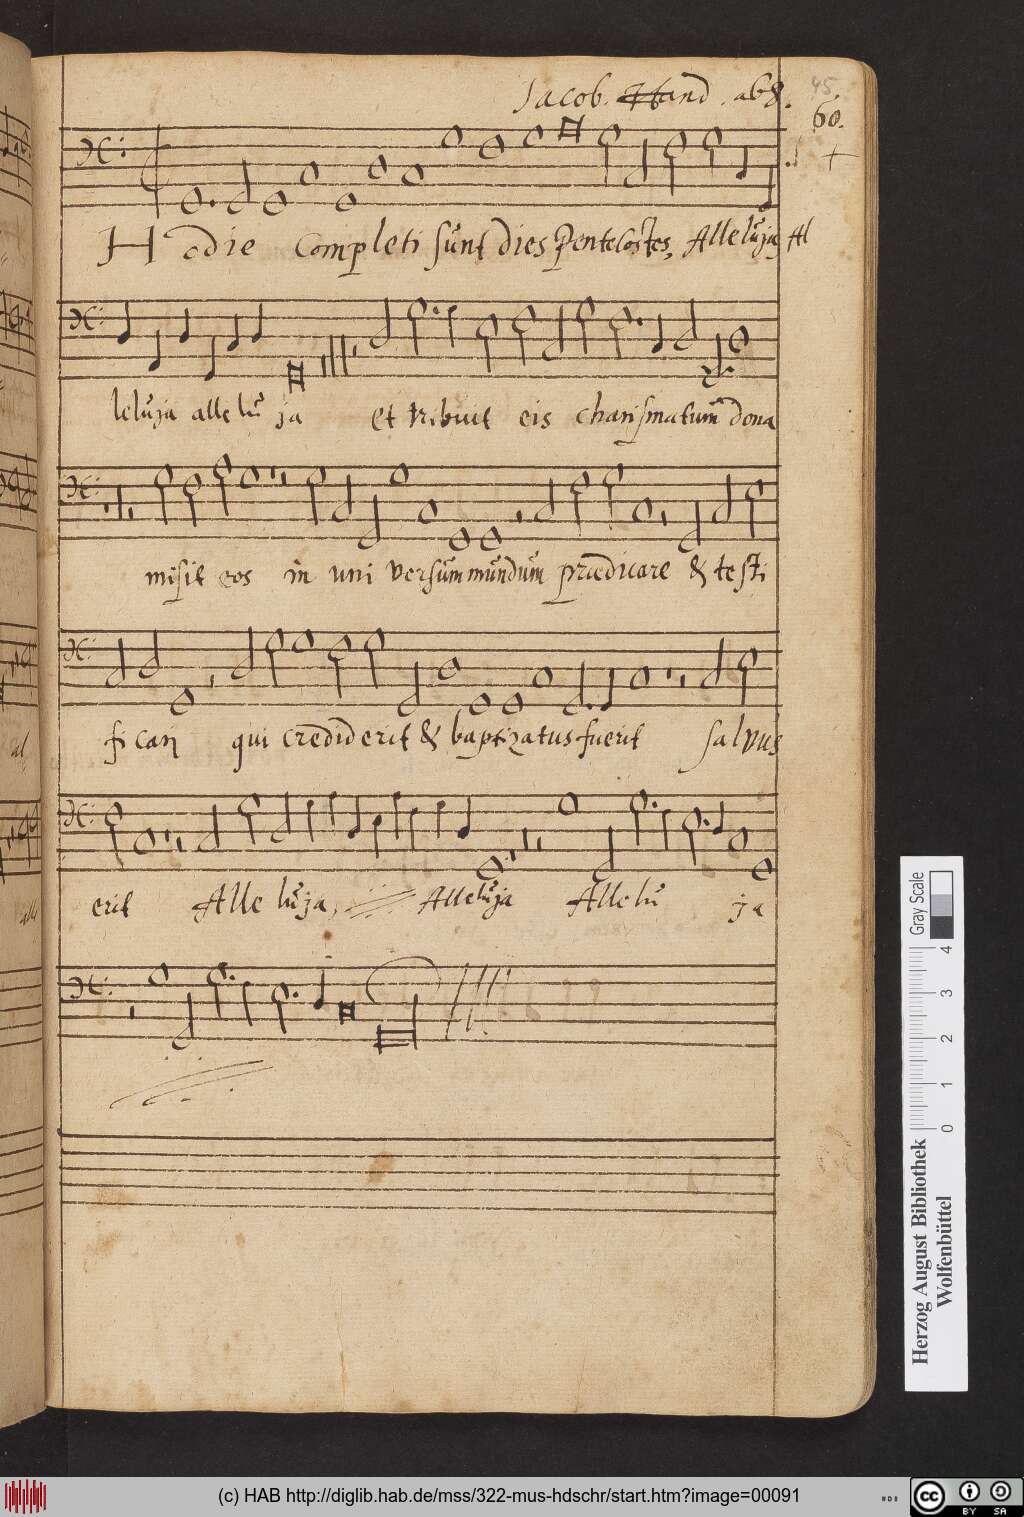 45.
Jacob. Hand. ab 8.
60.
Hodie completi sunt dies Pentecostes, Alleluja, Al
leluja alleluja et tribuit eis charismatum dona
misit eos in universum mundum prædicare & testi
ficari qui crediderit & baptizatus fuerit salvus
erit Alleluja, Alleluja Alleluja
Gray Scale
0 1 2 3 4
Herzog August Bibliothek
Wolfenbüttel
(c) HAB http://diglib.hab.de/mss/322-mus-hdschr/start.htm?image=00091
cc BY SA